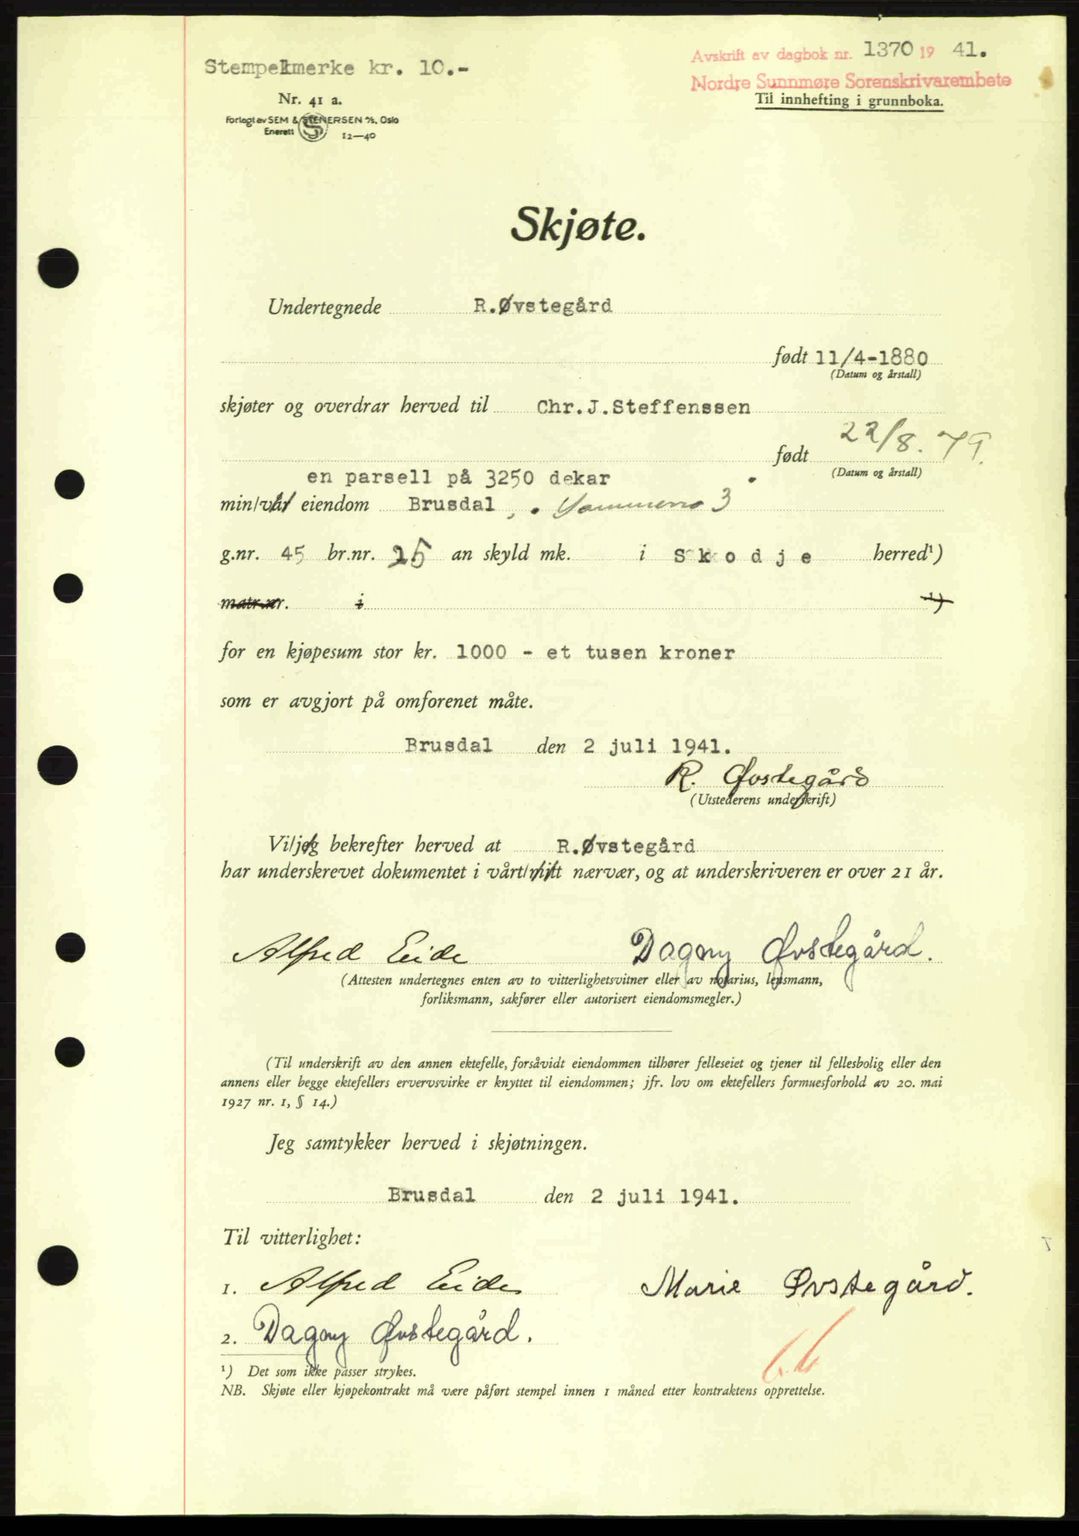 Stempelmerke kr. 10.-
Avskrift av dagbok nr. 1370 19 41.
Nordre Sunnmøre Sorenskrivarembete
Til innhefting i grunnboka.
Nr. 41 a.
Forlagt av SEM & STENERSEN A/S, Oslo
Enerett S 12—40
Skjøte.
Undertegnede R.Øvstegård
født 11/4-1880
(Datum og årstall)
skjøter og overdrar herved til Chr.J.Steffenssen
født 22/8.79.
(Datum og årstall)
en parsell på 3250 dekar
min/vår eiendom Brusdal,
g.nr. 45 br.nr. 25 an skyld mk. i Skodje herred¹)
matr.nr. i ¹)
for en kjøpesum stor kr. 1000 - et tusen kroner
som er avgjort på omforenet måte.
Brusdal den 2 juli 1941.
R. Øvstegård
(Utstederens underskrift)
Vi/jeg bekrefter herved at R.Øvstegård
har underskrevet dokumentet i vårt/mitt nærvær, og at underskriveren er over 21 år.
Alfred Eide Dagny Øvstegård.
(Attesten undertegnes enten av to vitterlighetsvitner eller av notarius, lensmann,
forliksmann, sakfører eller autorisert eiendomsmegler.)
(Til underskrift av den annen ektefelle, forsåvidt eiendommen tilhører felleseiet og tjener til fellesbolig eller den
annens eller begge ektefellers ervervsvirke er knyttet til eiendommen; jfr. lov om ektefellers formuesforhold av 20. mai
1927 nr. 1, § 14.)
Jeg samtykker herved i skjøtningen.
Brusdal den 2 juli 1941.
Til vitterlighet:
1. Alfred Eide Marie Øvstegård.
2. Dagny Øvstegård.
¹) Det som ikke passer strykes.
NB. Skjøte eller kjøpekontrakt må være påført stempel innen 1 måned etter kontraktens opprettelse.